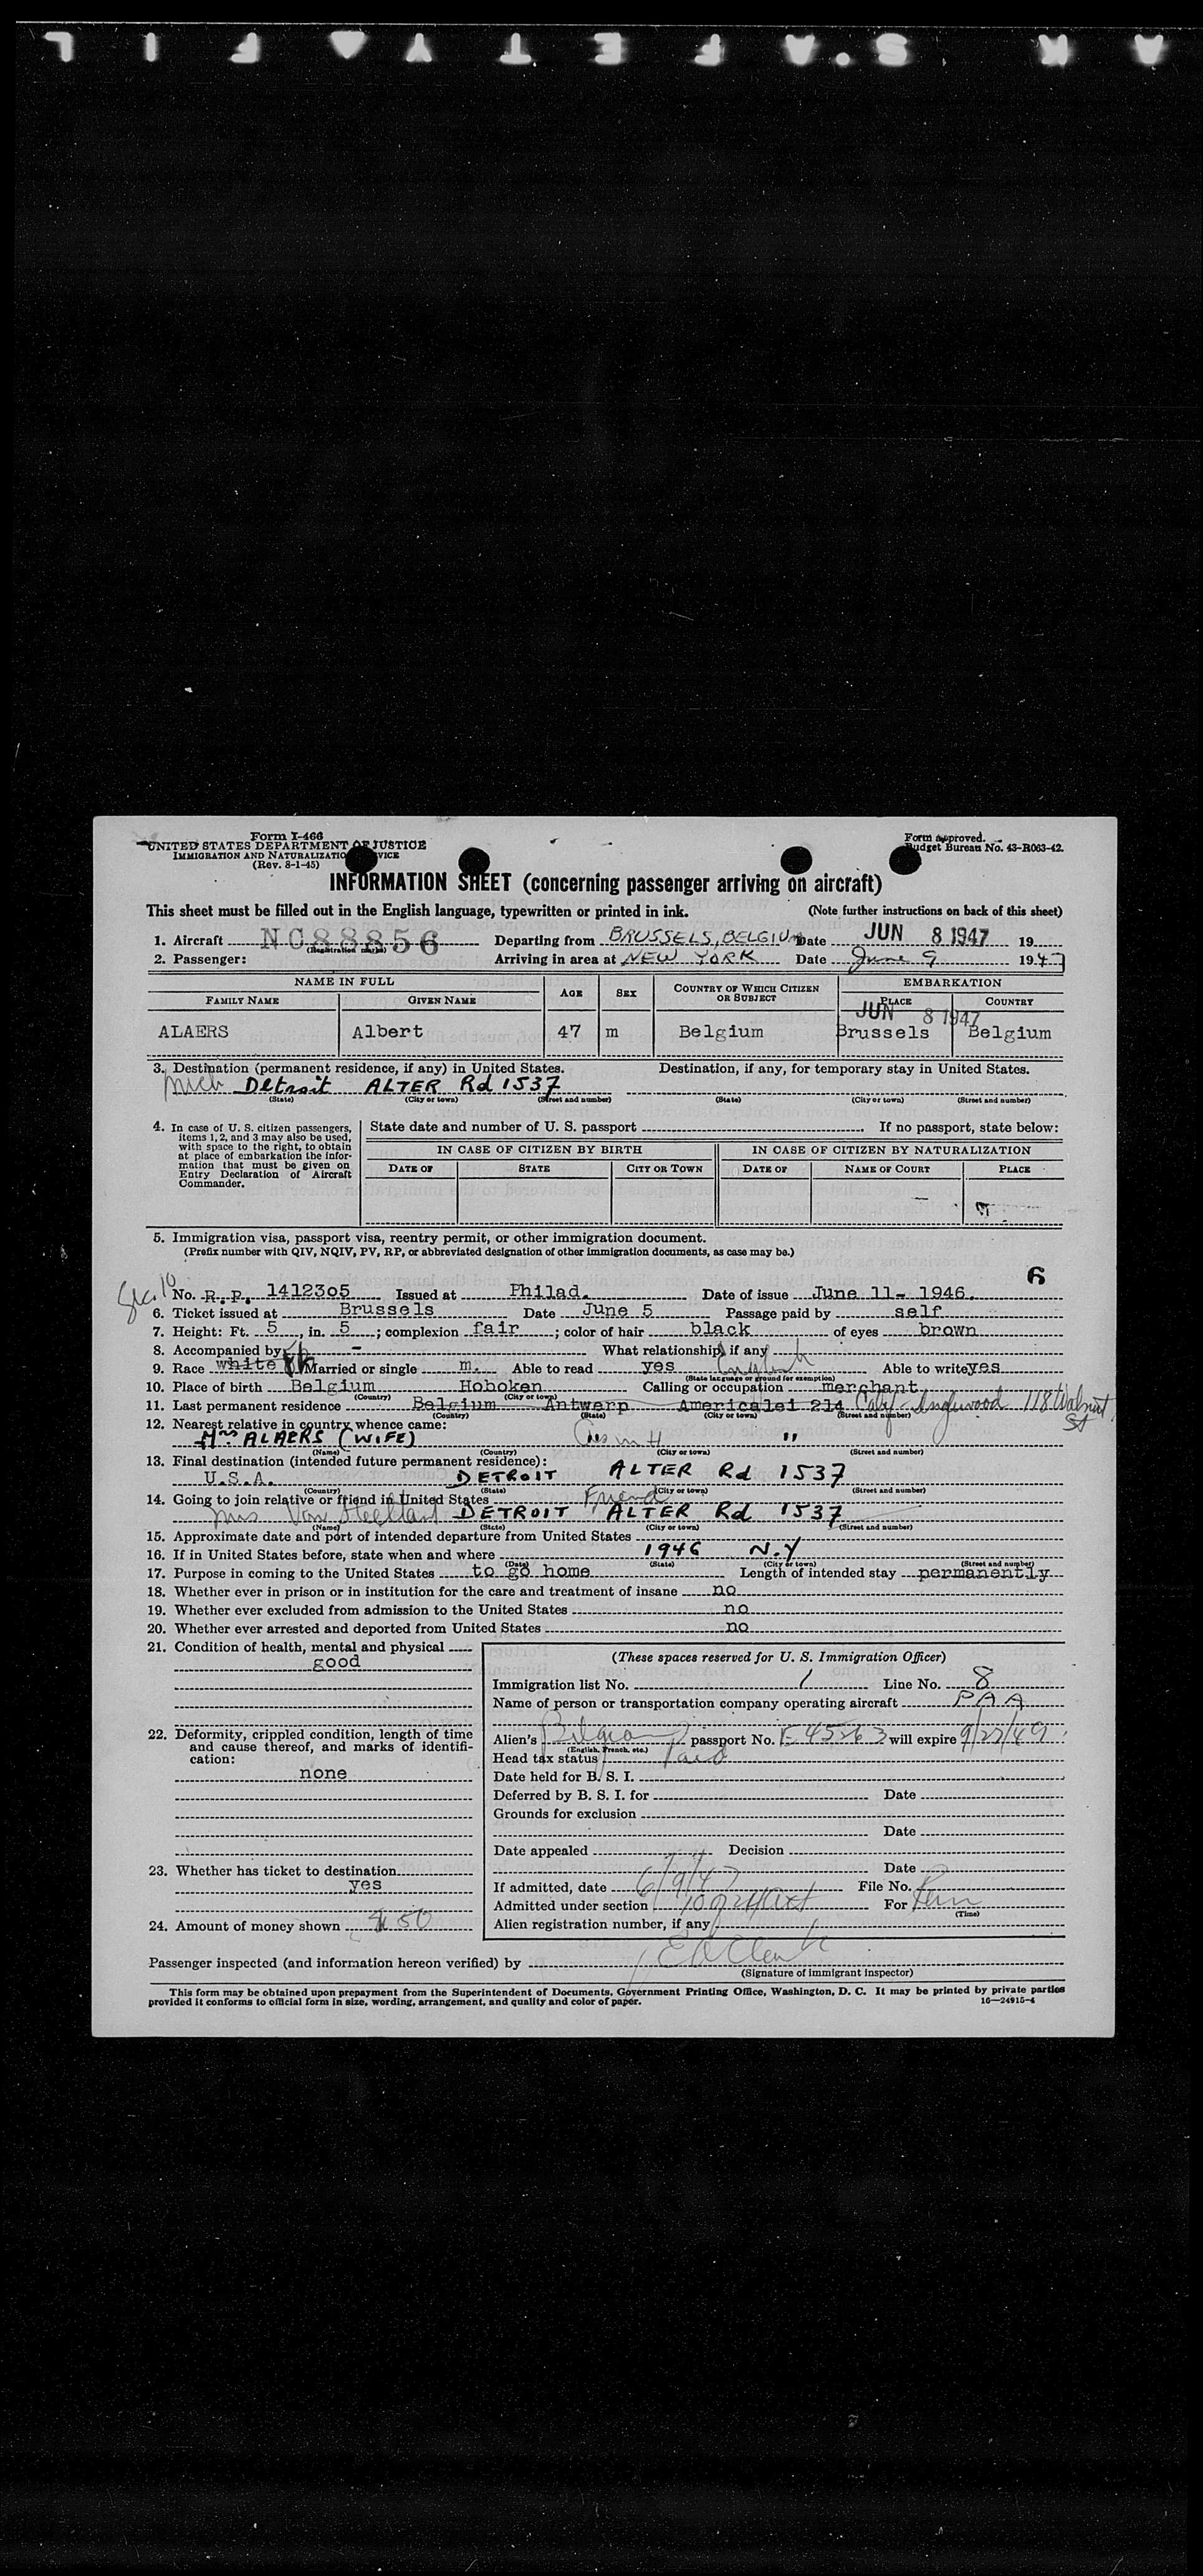 Form I-466
UNITED STATES DEPARTMENT OF JUSTICE
IMMIGRATION AND NATURALIZATION SERVICE
(Rev. 8-1-45)
Form approved.
Budget Bureau No. 43-R063-42.
INFORMATION SHEET (concerning passenger arriving on aircraft)
This sheet must be filled out in the English language, typewritten or printed in ink. (Note further instructions on back of this sheet)
1. Aircraft NC88856 (Registration marks) Departing from BRUSSELS, BELGIUM Date JUN 8 1947 19
2. Passenger: Arriving in area at NEW YORK Date June 9 1947
NAME IN FULL AGE SEX COUNTRY OF WHICH CITIZEN OR SUBJECT EMBARKATION
FAMILY NAME GIVEN NAME PLACE COUNTRY
JUN 8 1947
ALAERS Albert 47 m Belgium Brussels Belgium
3. Destination (permanent residence, if any) in United States. Destination, if any, for temporary stay in United States.
Mich Detroit ALTER Rd 1537
(State) (City or town) (Street and number) (State) (City or town) (Street and number)
4. In case of U. S. citizen passengers, items 1, 2, and 3 may also be used, with space to the right, to obtain at place of embarkation the information that must be given on Entry Declaration of Aircraft Commander.
State date and number of U. S. passport If no passport, state below:
IN CASE OF CITIZEN BY BIRTH IN CASE OF CITIZEN BY NATURALIZATION
DATE OF STATE CITY OR TOWN DATE OF NAME OF COURT PLACE
5. Immigration visa, passport visa, reentry permit, or other immigration document.
(Prefix number with QIV, NQIV, PV, RP, or abbreviated designation of other immigration documents, as case may be.)
6
Sec. 10 No. R.P. 1412305 Issued at Philad. Date of issue June 11- 1946.
6. Ticket issued at Brussels Date June 5 Passage paid by self
7. Height: Ft. 5, in. 5; complexion fair; color of hair black of eyes brown
8. Accompanied by - What relationship, if any
9. Race white Married or single m. Able to read yes English Able to write yes
(State language or ground for exemption)
10. Place of birth Belgium Hoboken Calling or occupation merchant
(Country) (City or town)
11. Last permanent residence Belgium Antwerp Americalei 214 Calif Inglewood 118 Walnut St
(Country) (State) (City or town) (Street and number)
12. Nearest relative in country whence came:
Mrs ALAERS (WIFE) "
(Name) (Country) (City or town) (Street and number)
13. Final destination (intended future permanent residence):
U.S.A. DETROIT ALTER Rd 1537
(Country) (State) (City or town) (Street and number)
14. Going to join relative or friend in United States Friend
Mrs Van DETROIT ALTER Rd 1537
(Name) (State) (City or town) (Street and number)
15. Approximate date and port of intended departure from United States
16. If in United States before, state when and where 1946 N.Y
(Date) (State) (City or town) (Street and number)
17. Purpose in coming to the United States to go home Length of intended stay permanently
18. Whether ever in prison or in institution for the care and treatment of insane no
19. Whether ever excluded from admission to the United States no
20. Whether ever arrested and deported from United States no
21. Condition of health, mental and physical
good
22. Deformity, crippled condition, length of time and cause thereof, and marks of identification:
none
23. Whether has ticket to destination
yes
24. Amount of money shown $50
(These spaces reserved for U. S. Immigration Officer)
Immigration list No. 1 Line No. 8
Name of person or transportation company operating aircraft PAA
Alien's Belgian passport No. E 45563 will expire 9/27/49
(English, French, etc.)
Head tax status Paid
Date held for B. S. I.
Deferred by B. S. I. for Date
Grounds for exclusion
Date
Date appealed Decision
Date
If admitted, date 6/9/47 File No.
Admitted under section 10 of 24 Act For Perm
(Time)
Alien registration number, if any
Passenger inspected (and information hereon verified) by
(Signature of immigrant inspector)
This form may be obtained upon prepayment from the Superintendent of Documents, Government Printing Office, Washington, D. C. It may be printed by private parties
provided it conforms to official form in size, wording, arrangement, and quality and color of paper. 16—24915-4